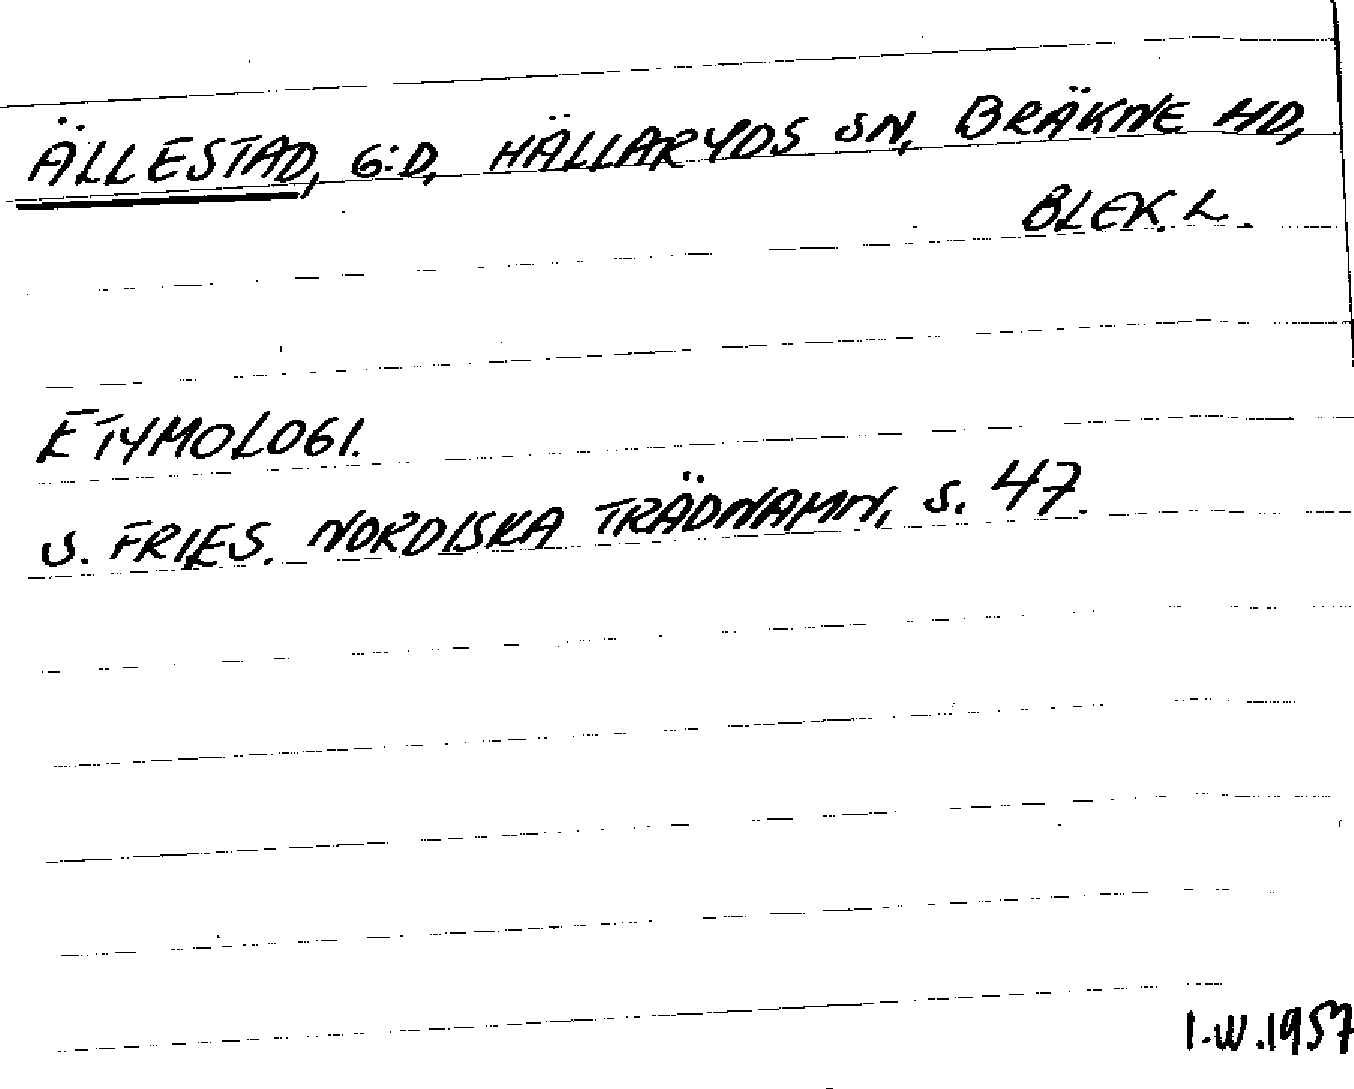 ÄLLESTAD, G:D, HÄLLARYDS SN, BRÄKNE HD,
BLEK. L.
ETYMOLOGI.
S. FRIES. NORDISKA TRÄDNAMN, S. 47.
I.W.1957